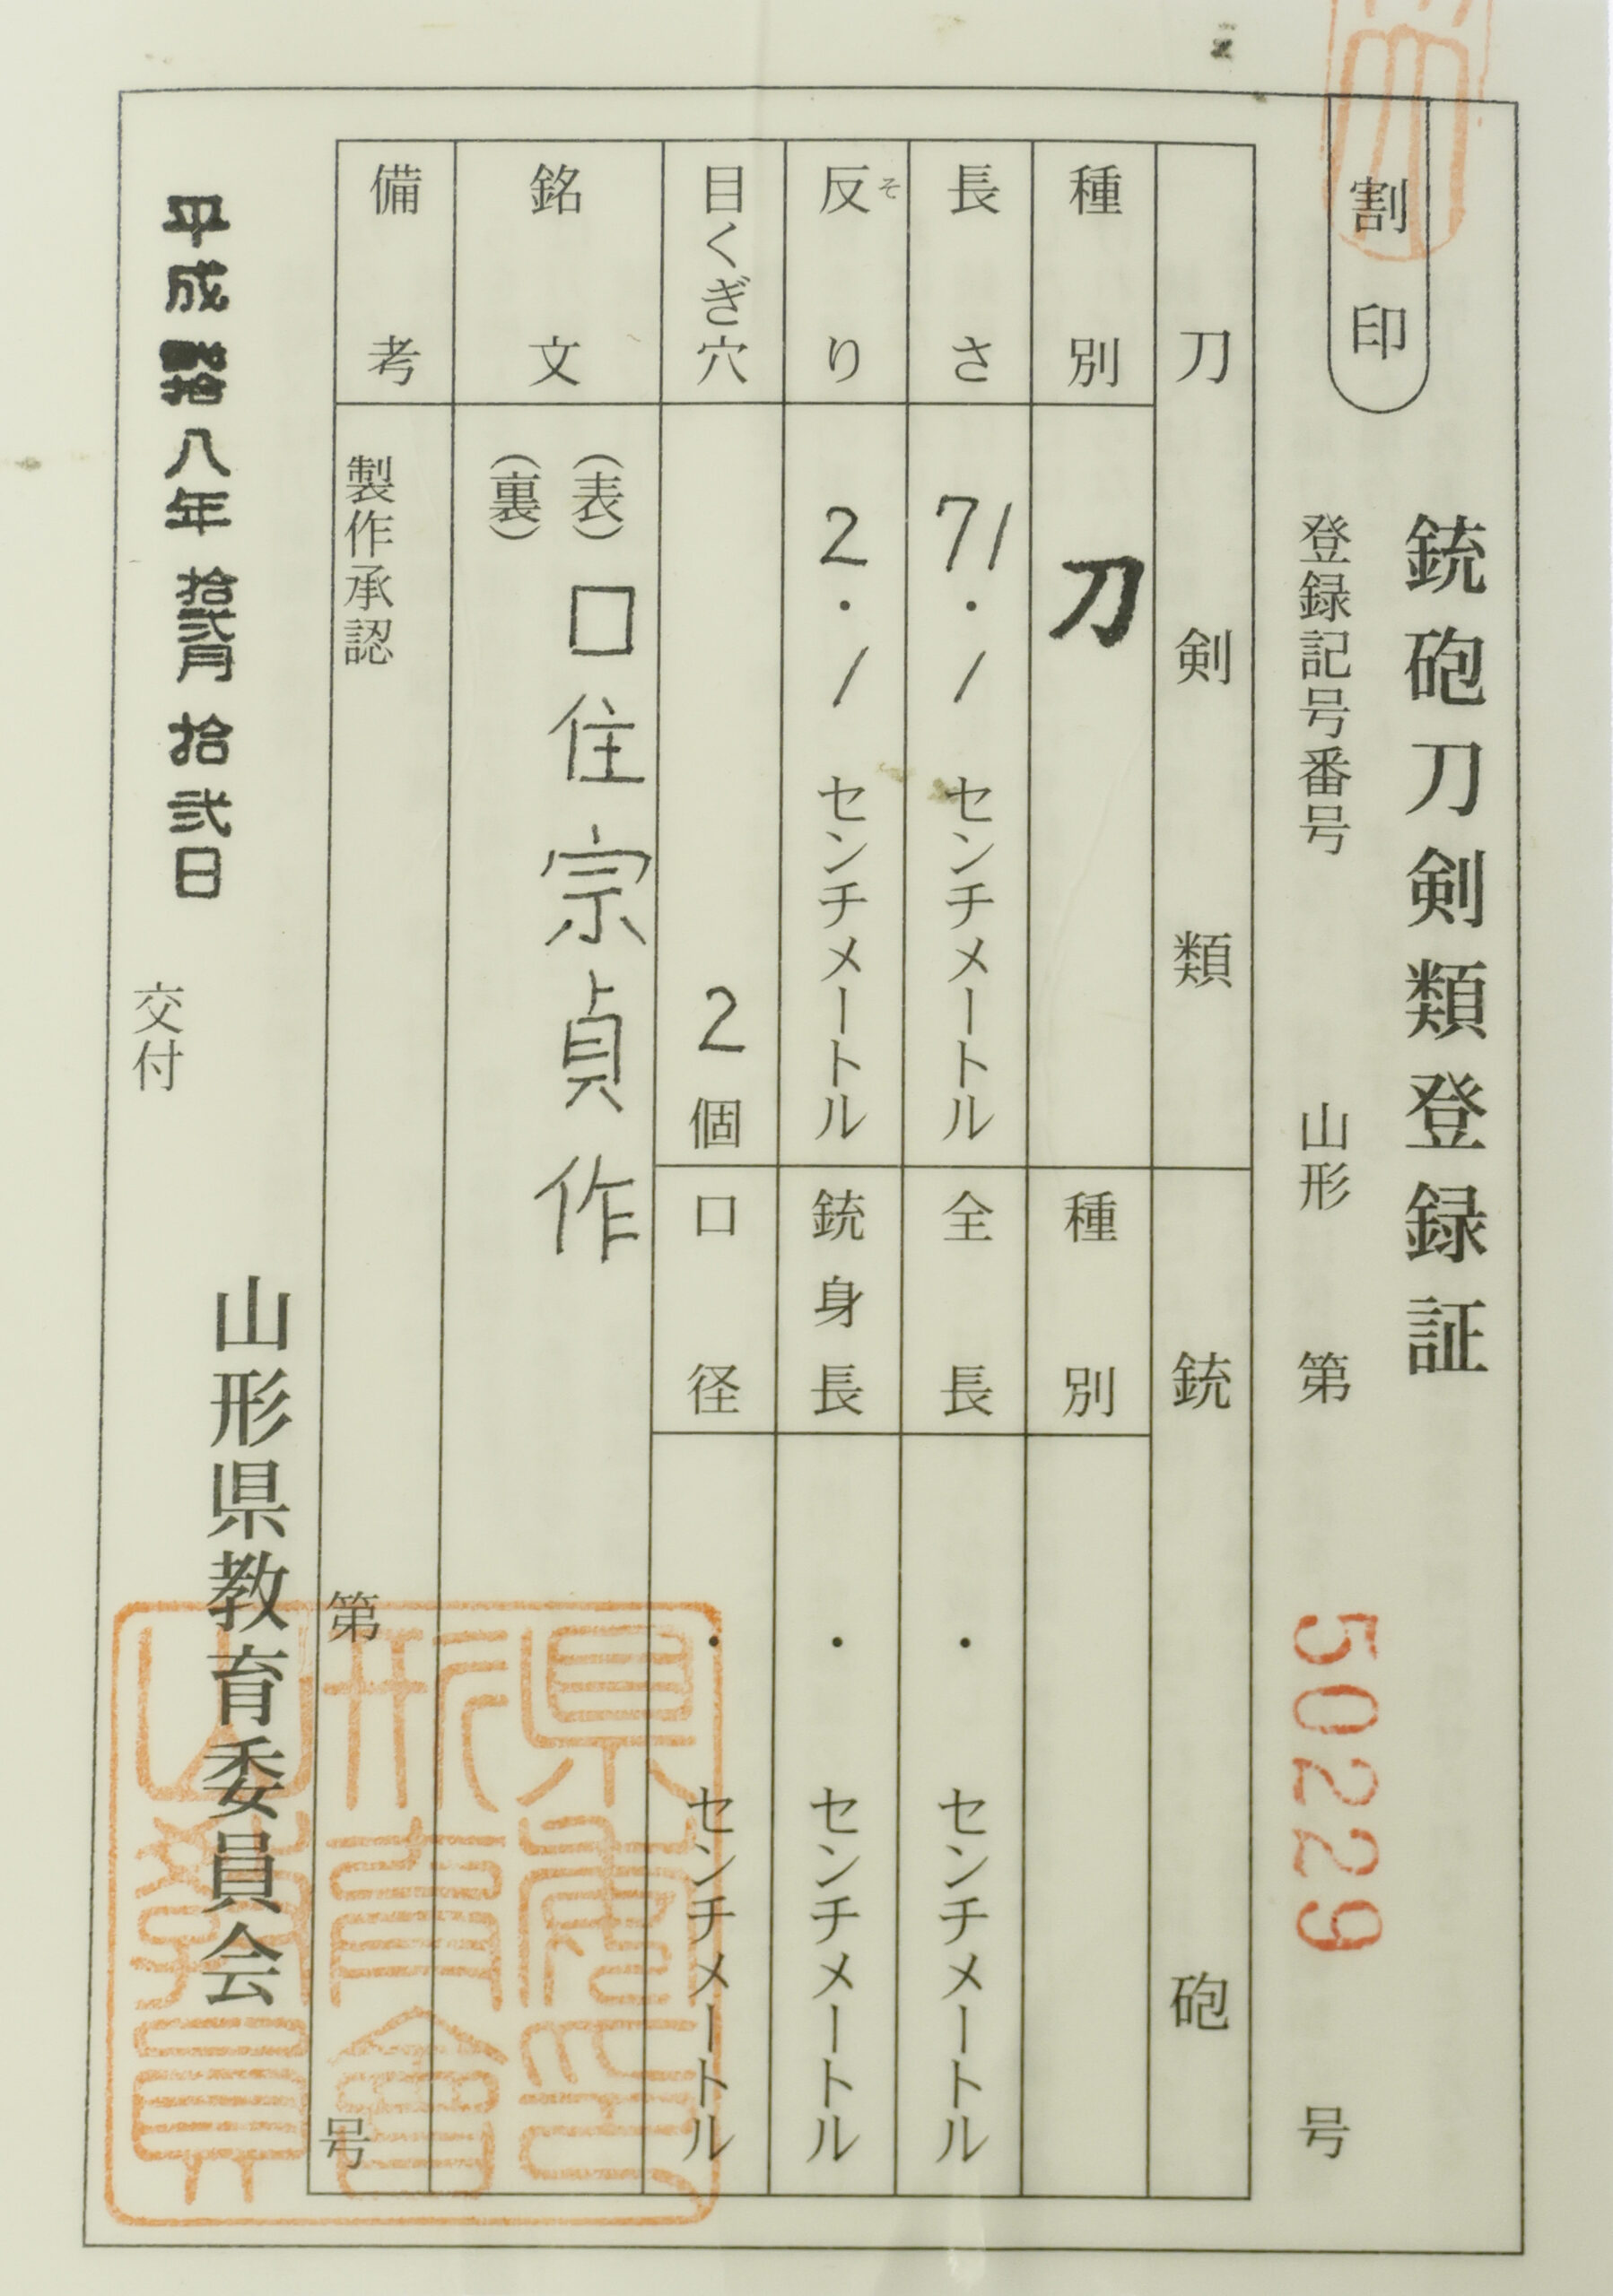 銃砲刀剣類登録証
割印
登録記号番号 山形 第 50229 号
刀剣類
銃砲
種別 刀
種別
長さ 71.1 センチメートル
全長 ・ センチメートル
反り そ 2.1 センチメートル
銃身長 ・ センチメートル
目くぎ穴 2個
口径 ・ センチメートル
銘文
(表) 口住宗貞作
(裏)
備考 製作承認 第 号
山形県教育委員会
平成拾八年 拾弐月 拾弐日 交付